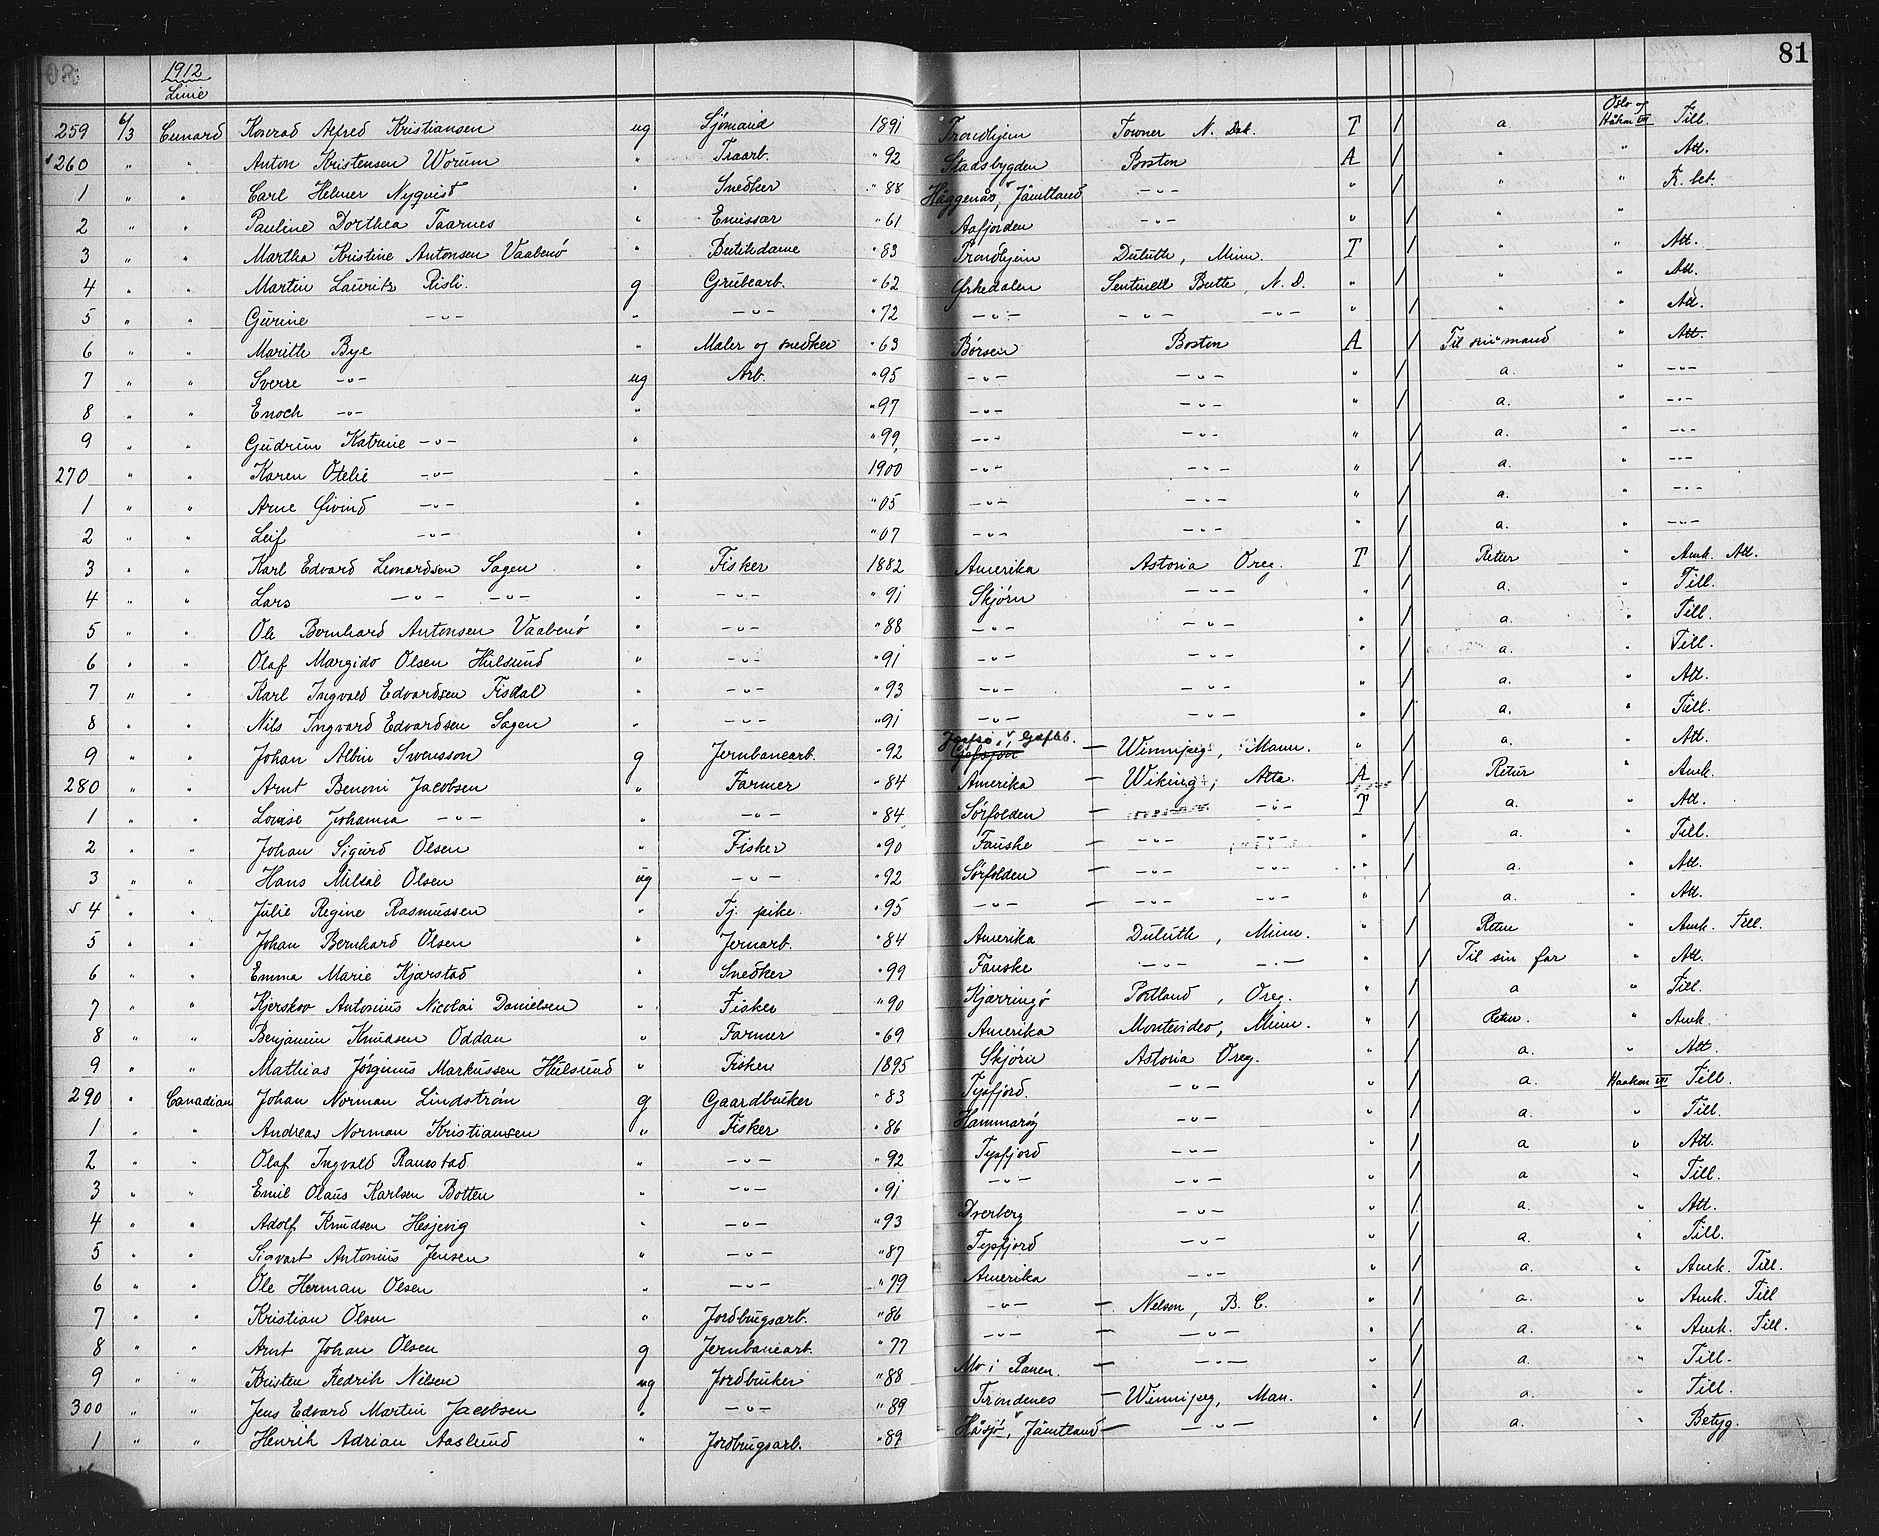 81
1912
Linie
259 6/3 Cunard Konrad Alfred Kristiansen ug Sjömand 1891 Trondhjem Towner N. Dak. T / a. Oslo og Håkon VII Till.
260 " " Anton Kristensen Worum " Traarb. " 92 Stadsbygden Boston A / " " Att.
1 " " Carl Helmer Nyqvist " Snedker " 88 Häggenås, Jämtland -"- " / " " Fr. bet.
2 " " Pauline Dorthea Taarnes " Emissær " 61 Aafjorden -"- " / " "
3 " " Martha Kristine Antonsen Vaabenö " Butikdame " 83 Trondhjem Duluth, Minn. T / " " Att.
4 " " Martin Lauritz Risli. g Grubearb. " 62 Ørkedalen Sentinell Butte, N. D. " / " " Att.
5 " " Gurine -"- " -"- " 72 -"- -"- -"- " / " " Att.
6 " " Marith Bye " Maler og snedker " 63 Børsen Boston A / Til sin mand " Att.
7 " " Sverre -"- ug Arb. " 95 -"- -"- " / a. " -"-
8 " " Enoch -"- " " 97 -"- -"- " / a. " -"-
9 " " Gudrun Katrine -"- " " 99 -"- -"- " / a. " -"-
270 " " Karen Otelie -"- " 1900 -"- -"- " / a. " -"-
1 " " Arne Øivind -"- " " 05 -"- -"- " / a. " -"-
2 " " Leif -"- " " 07 -"- -"- " / a. " -"-
3 " " Karl Edvard Leonardsen Sagen " Fisker 1882 Amerika Astoria Oreg. T / Retur " Amk. Att.
4 " " Lars -"- -"- " -"- " 91 Skjörn -"- " / a. " Till.
5 " " Ole Bernhard Antonsen Vaabenö " -"- " 88 -"- -"- " / a. " Till.
6 " " Olaf Margido Olsen Hulsund " -"- " 91 -"- -"- " / a. " Till.
7 " " Karl Ingvald Edvardsen Fisdal " -"- " 93 -"- -"- " / a. " Att.
8 " " Nils Ingvard Edvardsen Sagen " -"- " 91 -"- -"- " / a. " Till.
9 " " Johan Albin Svensson g Jernbanearb. " 92 Gefleb. - Winnipeg, Mann. " / a. " Att.
280 " " Arnt Benoni Jacobsen " Farmer " 84 Amerika - Wiking, Alta. A / Retur " Amk.
1 " " Lovise Johanna -"- " -"- " 84 Sørfolden - -"- T / a. " Att.
2 " " Johan Sigurd Olsen " Fisker " 90 Fauske - -"- -"- " / a. " Till.
3 " " Hans Mildal Olsen ug -"- " 92 Sørfolden - -"- -"- " / a. " Att.
4 " " Julie Regine Rasmussen " Tj. pike. " 95 -"- - -"- -"- " / a. " Att.
5 " " Johan Bernhard Olsen " Jernarb. " 84 Amerika Duluth, Minn. " / Retur " Amk. Till.
6 " " Emma Marie Kjærstad " Snedker " 99 Fauske -"- -"- " / Til sin far " Att.
7 " " Kjerskov Antonius Nicolai Danielsen " Fisker " 90 Kjærringö Portland, Oreg. " / a " Till.
8 " " Benjamin Knudsen Oddan " Farmer " 69 Amerika Montevideo, Minn. " / Retur. " Amk.
9 " " Mathias Jörginus Markussen Hulsund " Fisker 1895 Skjörn Astoria Oreg. " / a. " Att.
290 " Canadian Johan Norman Lindström g Gaardbruker " 83 Tysfjord. -"- " / a. Haakon VII Till.
1 " " Andreas Norman Kristiansen " Fisker " 86 Hammarøy -"- " / a. " Till.
2 " " Olaf Ingvald Ranestad " -"- " 92 Tysfjord -"- " / a " Att.
3 " " Emil Olaus Karlsen Botten " -"- " 91 -"- -"- " / a " Till.
4 " " Adolf Knudsen Hesjevig " -"- " 93 Dverberg -"- " / a. " Att.
5 " " Sigvart Antonius Jensen " -"- " 87 Tysfjord -"- " / a. " Till.
6 " " Ole Herman Olsen " -"- " 79 Amerika -"- " / a. " Amk. Till.
7 " " Kristian Olsen " Jordbrugsarb. " 86 -"- - Nelson, B. C. " / a. " Amk. Till
8 " " Arnt Johan Olsen g Jernbanearb. " 77 -"- - -"- " / a. " Amk. Till.
9 " " Kristen Fredrik Nilsen ug Jordbruker " 88 Mo i Ranen. - -"- " / a. " Till.
300 " " Jens Edvard Martin Jacobsen " -"- " 89 Trondenes - Winnipeg, Man. " / a. " Till.
1 " " Henrik Adrian Aaslund " Jordbrugsarb. " 89 Håsjö, Jämtland - -"- " / a. " Betyg.